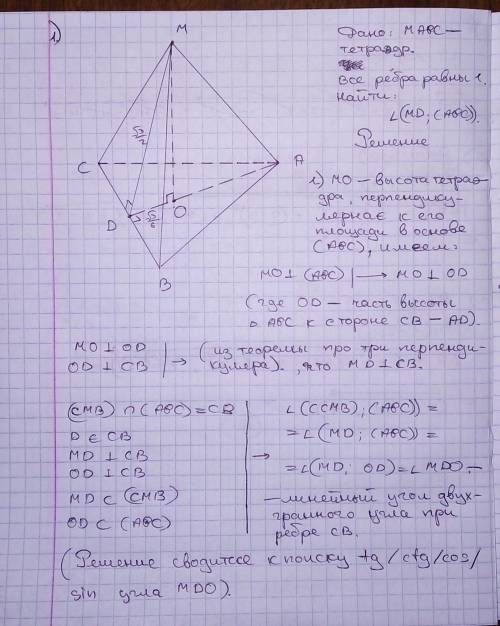 1)
M
C
A
D
O
B
√3/2
√3/6
Дано: МАВС —
тетраэдр.
Все рёбра равны 1.
Найти:
∠(MD; (ABC)).
Решение
1) МО — высота тетраэ-
дра, перпендику-
мернае к его
площади в основе
(АВС), имеем:
MO⊥(ABC) | → MO⊥OD
(где OD — часть высоты
△ABC к стороне CB – AD).
MO⊥OD
OD⊥CB
→ (из теоремы про три перпенди-
кумера)., что MD⊥CB.
(CMB)∩(ABC)=CB
D∈CB
MD⊥CB
OD⊥CB
MD⊂(CMB)
OD⊂(ABC)
→
∠((CMB);(ABC))=
=∠(MD;(ABC))=
=∠(MD; OD)=∠MDO —
— линейный угол двух-
гранного угла при
ребре CB.
(Решение сводитсе к поиску tg/ctg/cos/
sin угла MDO).